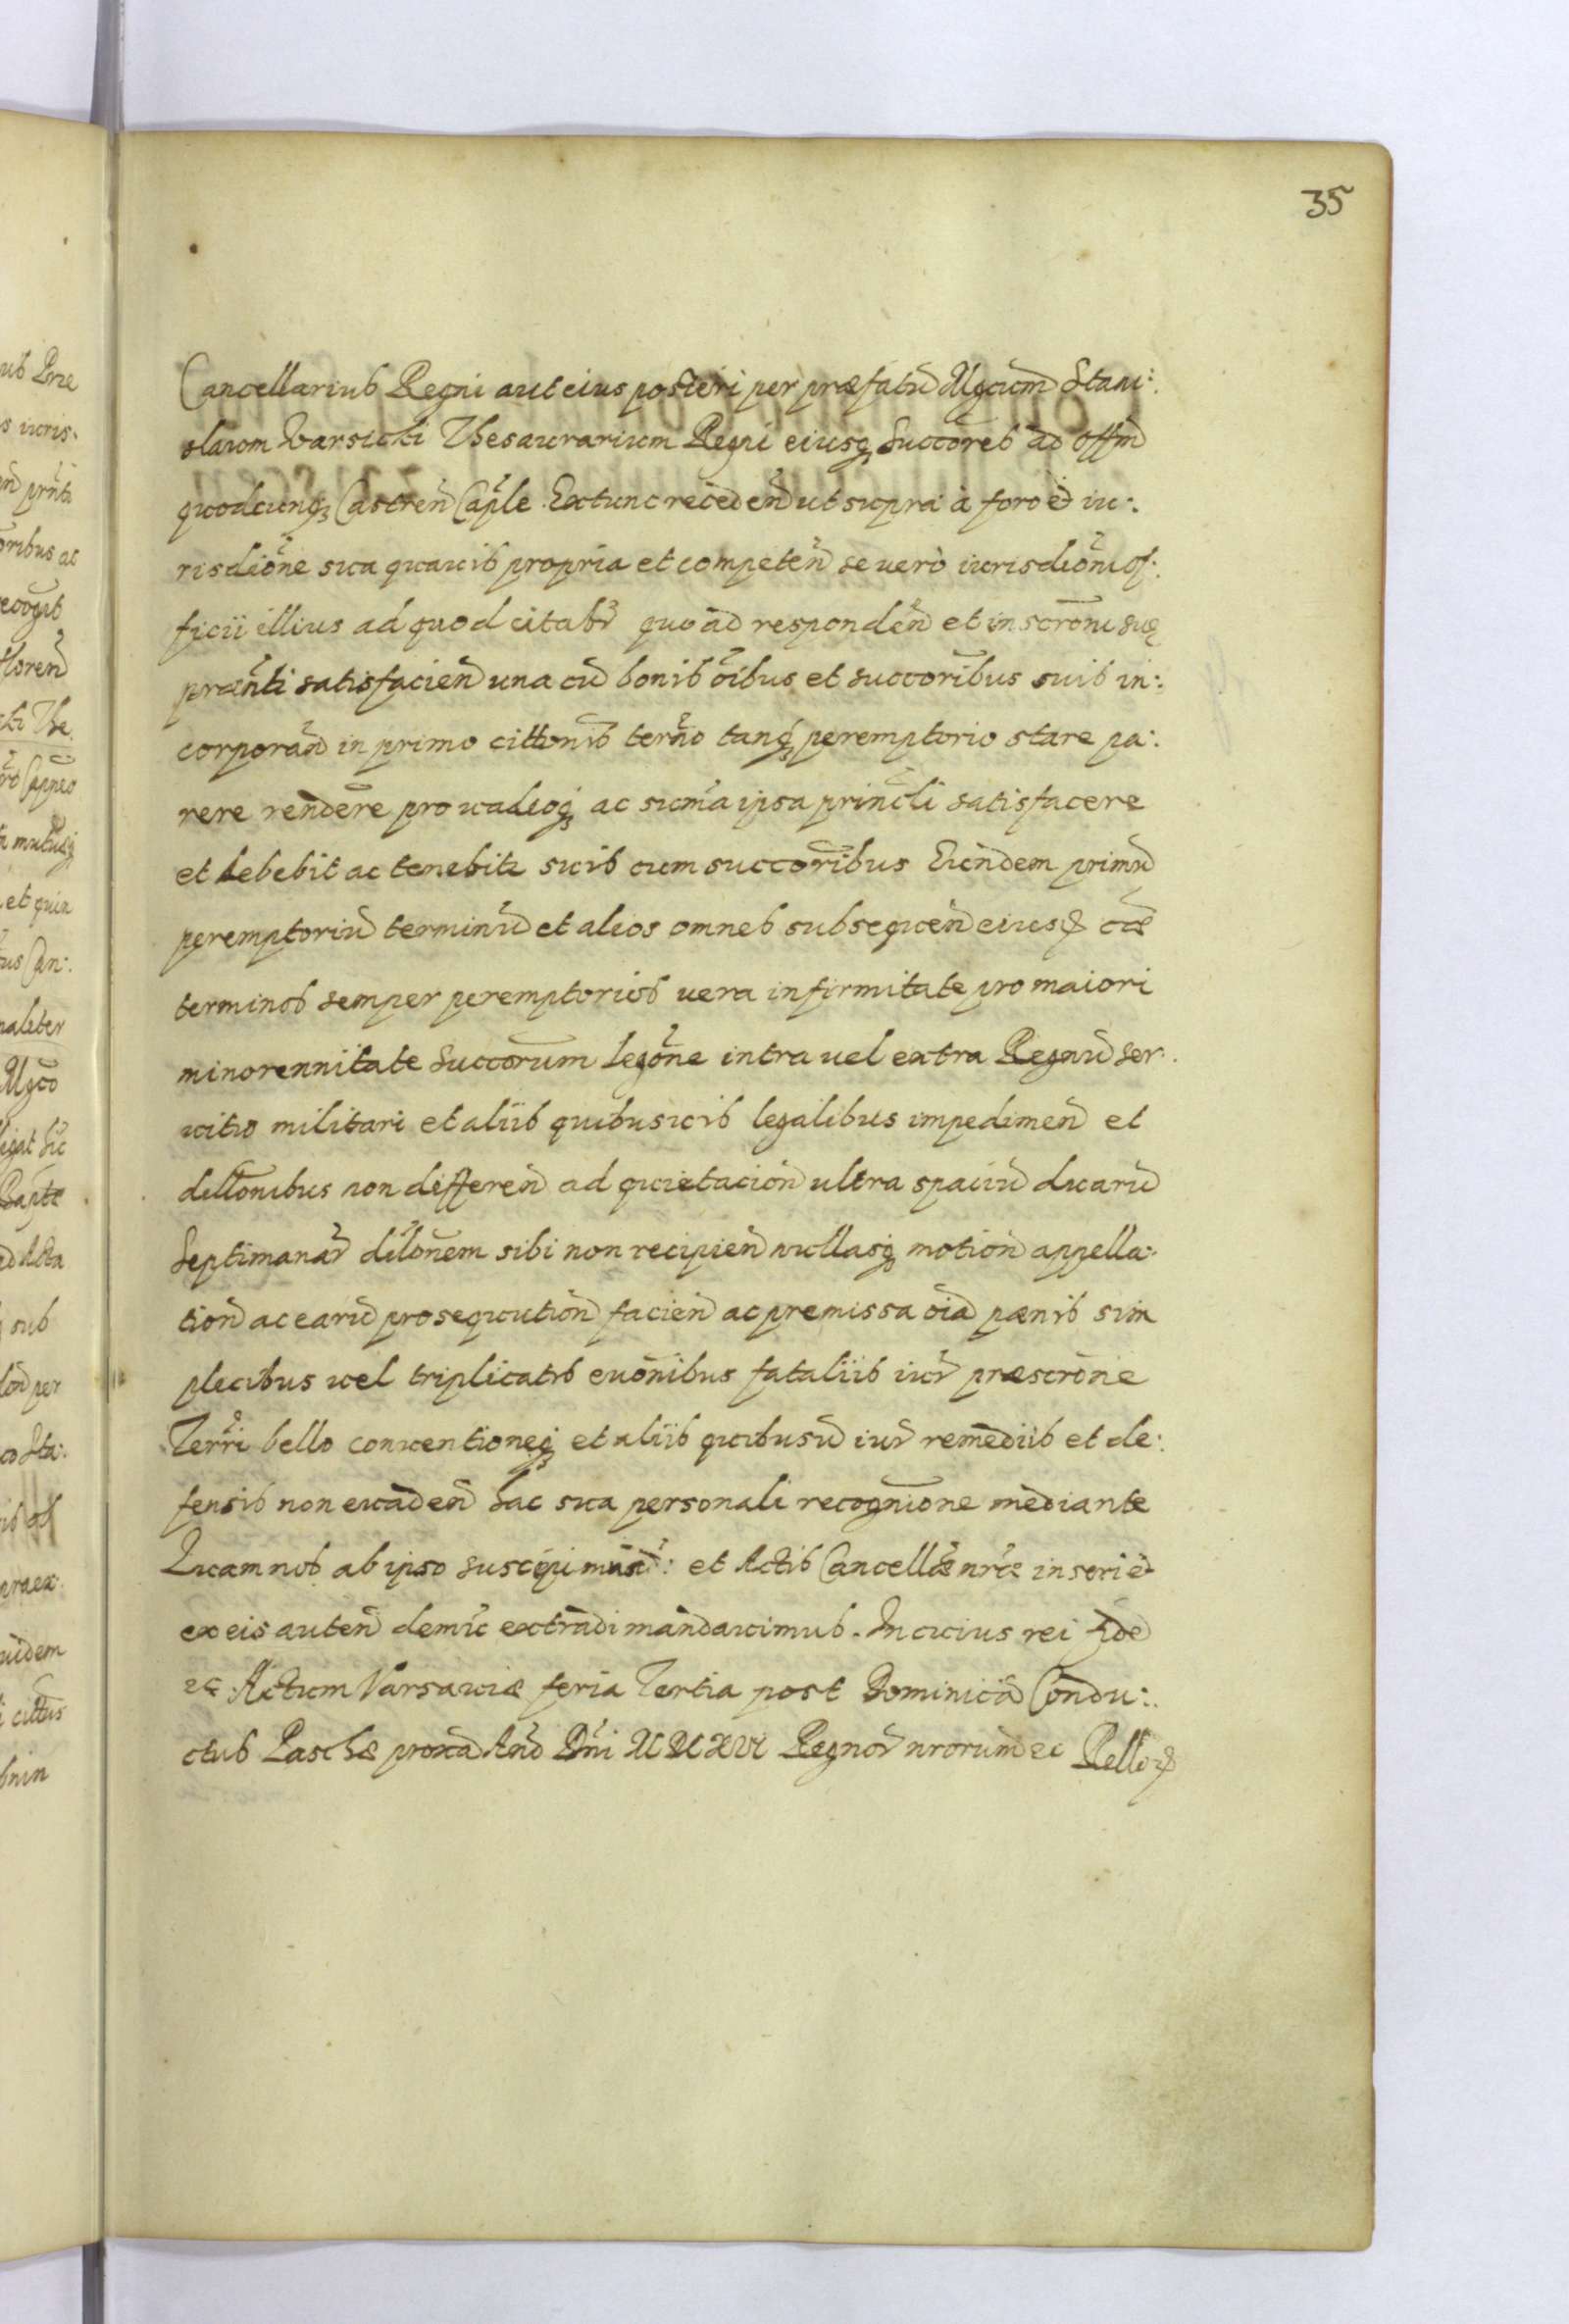 35
Cancellarius Regni aut eius posteri per præfatũ Mgcum Stani:
slaum Varsicki Thesaurarium Regni eiusq̃ Succores ad Offm
quodcunq̃ Castren̄ Caple. Extunc receden̄ ut supra à foro et iu:
risdiōne sua quauis propria et competen̄ se vero iurisdiōni of:
ficii illius ad quod citabr quoad responden̄ et inscrōni suę
prænti satisfacien̄ una cũ bonis oībus et succoribus suis in:
corporan̄ in primo cittonis terno tanq̃ peremptorio stare pa:
rere rendere pro uadioq̃ ac suma ipsa princli satisfacere
et debebit ac tenebitr suis cum succoribus Eundem primũ
peremptoriũ terminũ et alios omnes subsequen̄ eiusd cæ
terminos semper peremptorios uera infirmitate pro maiori
minorennitate Succorum legōne intra uel extra Regnũ ser:
uitio militari et aliis quibusuis legalibus impedimen̄ et
dillonibus non differen̄ ad quietacion̄ ultra spaciũ duarũ
Septimanar dilonem sibi non recipien̄ nullasq̃ motion̄ appella:
tion̄ ac earũ prosequution̄ facien̄ ac premissa oīa pænis sim
plicibus uel triplicatis euōnibus fataliis iur præscrōne
Terri bello conuentioneq̃ et aliis quibusũ iur remediis et de:
fensis non euaden̄ hac sua personali recognione mediante
Quam nos ab ipso suscipi et Actis Cancellæ nræ inseri et
ex eis auten̄ demũ extradi mandauimus. In cuius rei fidẽ
etc. Actum Varsauiæ feria Tertia post Dominicã Condu:
ctus Paschæ proxa Ano Dni Regnor nrorum etc